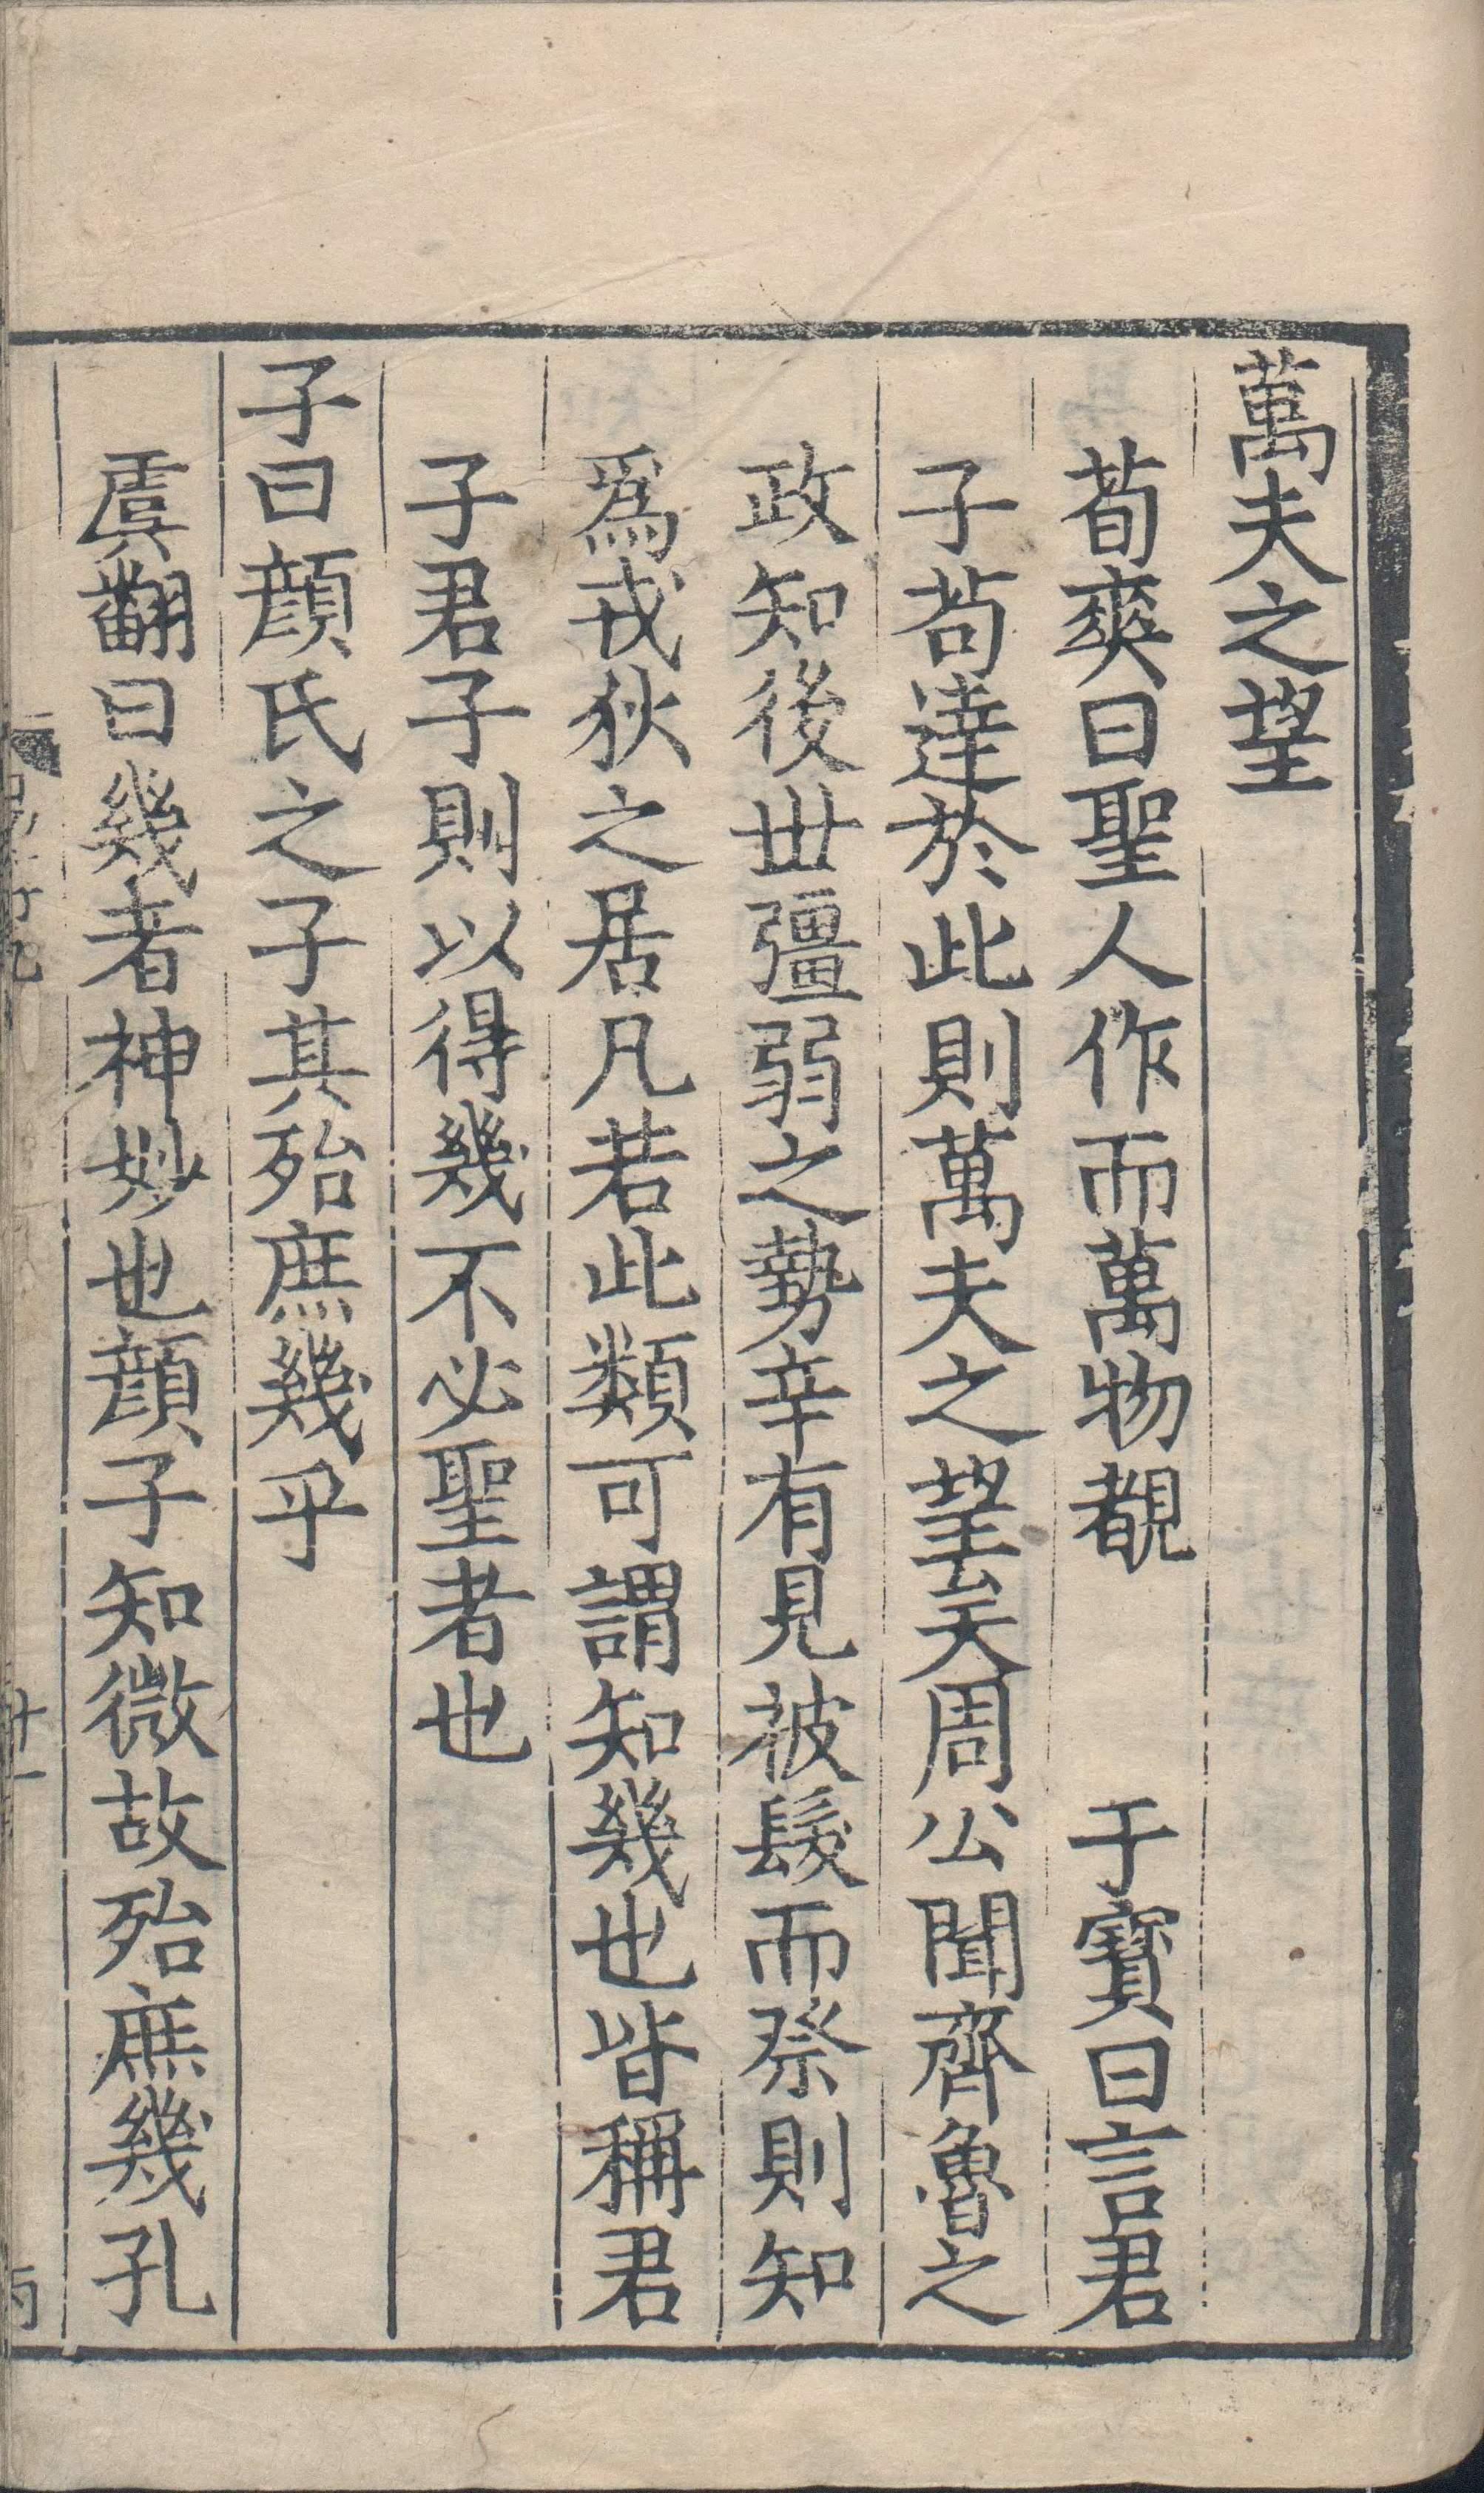 萬夫之望
荀爽曰聖人作而萬物覩　　于寳曰言君
子苟達於此則萬夫之望矣周公聞齊魯之
政知後世彊弱之勢辛有見被髮而祭則知
爲戎狄之居凡若此類可謂知幾也皆稱君
子君子則以得幾不必聖者也
子曰顔氏之子其殆庶幾乎
虞翻曰幾者神妙也顔子知微故殆庶幾孔